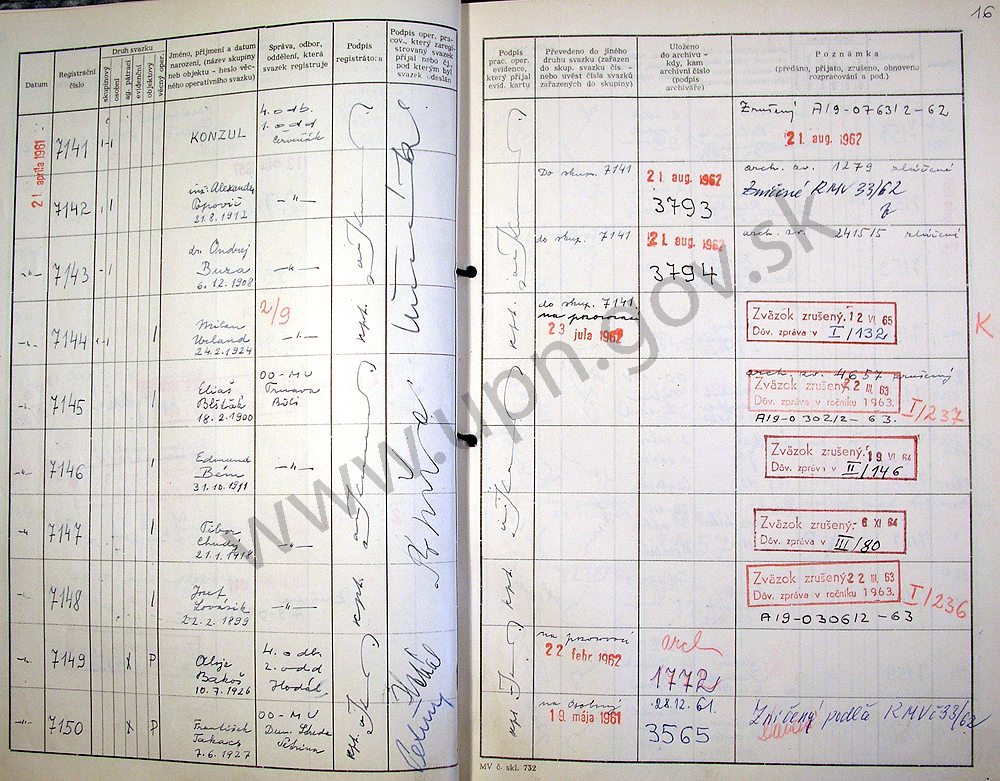 16
Datum
Registrační číslo
Druh svazku
skupinový
osobní
ag. pátrací
evidenční
objektový
věcný oper.
Jméno, příjmení a datum
narození, (název skupiny
neb objektu - heslo věc-
ného operativního svazku)
Správa, odbor,
oddělení, která
svazek registruje
Podpis
registrátora
Podpis oper. pra-
cov., který zaregi-
strovaný svazek
přijal nebo čj.,
pod kterým byl
svazek odeslán
Podpis
prac. oper.
evidence,
který přijal
evid. kartu
Převedeno do jiného
druhu svazku (zařazen
do skup. svazku čís. -
nebo uvést čísla svazků
zařazených do skupiny)
Uloženo
do archivu -
kdy, kam
archivní číslo
(podpis
archiváře)
Poznámka
(předáno, přijato, zrušeno, obnoveno
rozpracování a pod.)
21. apríla 1961
7141
KONZUL
4. odb.
1. odd
Červeňák
Zrušený A/9-0763/2-62
21 aug. 1962
7142
inž. Alexander
Popovič
21.8.1912
-"-
Do skup. 7141
21 aug. 1962
3793
arch. zv. 1279 zlúčené
Zničené RMV 33/62
-"-
7143
dr. Ondrej
Buza
6.12.1908
-"-
do skup. 7141
21 aug. 1962
3794
arch. zv. 2415/5 zlúčené
-"-
7144
Milan
24.2.1924
2/9
-"-
kpt.
do skup. 7141
23 jula 1962
Zväzok zrušený. 12 VI 65
Dôv. zpráva v I/132
K
7145
Eliáš
Blšťák
18.2.1900
OO-MV
Trnava
kpt.
arch. zv. 4657 zrušený
Zväzok zrušený. 22 III. 63
Dôv. zpráva v ročníku 1963.
I/237
A/9-0302/2-63.
-"-
7146
Edmund
Bém
31.10.1911
-"-
Zväzok zrušený. 19 VI 64
Dôv. zpráva v II/146
-"-
7147
Tibor
Chudý
21.1.1918
-"-
Zväzok zrušený. 6 XI 64
Dôv. zpráva v III/80
-"-
7148
Jozef
Lovásik
22.2.1899
-"-
kpt.
Zväzok zrušený 22 III. 63
Dôv. zpráva v ročníku 1963.
I/236
A/9-0306/2-63
-"-
7149
x
P
Alojz
Bakoš
10.7.1926
4. odb.
2. odd
Hodál
22 febr 1962
arch
1772
-"-
7150
x
P
František
Takacs
7.6.1927
OO-MV
Dun. Streda
kpt.
na osobný
19. mája 1961
28.12.61.
3565
Zničený podľa RMV č 33/62
MV č. skl. 732
www.upn.gov.sk